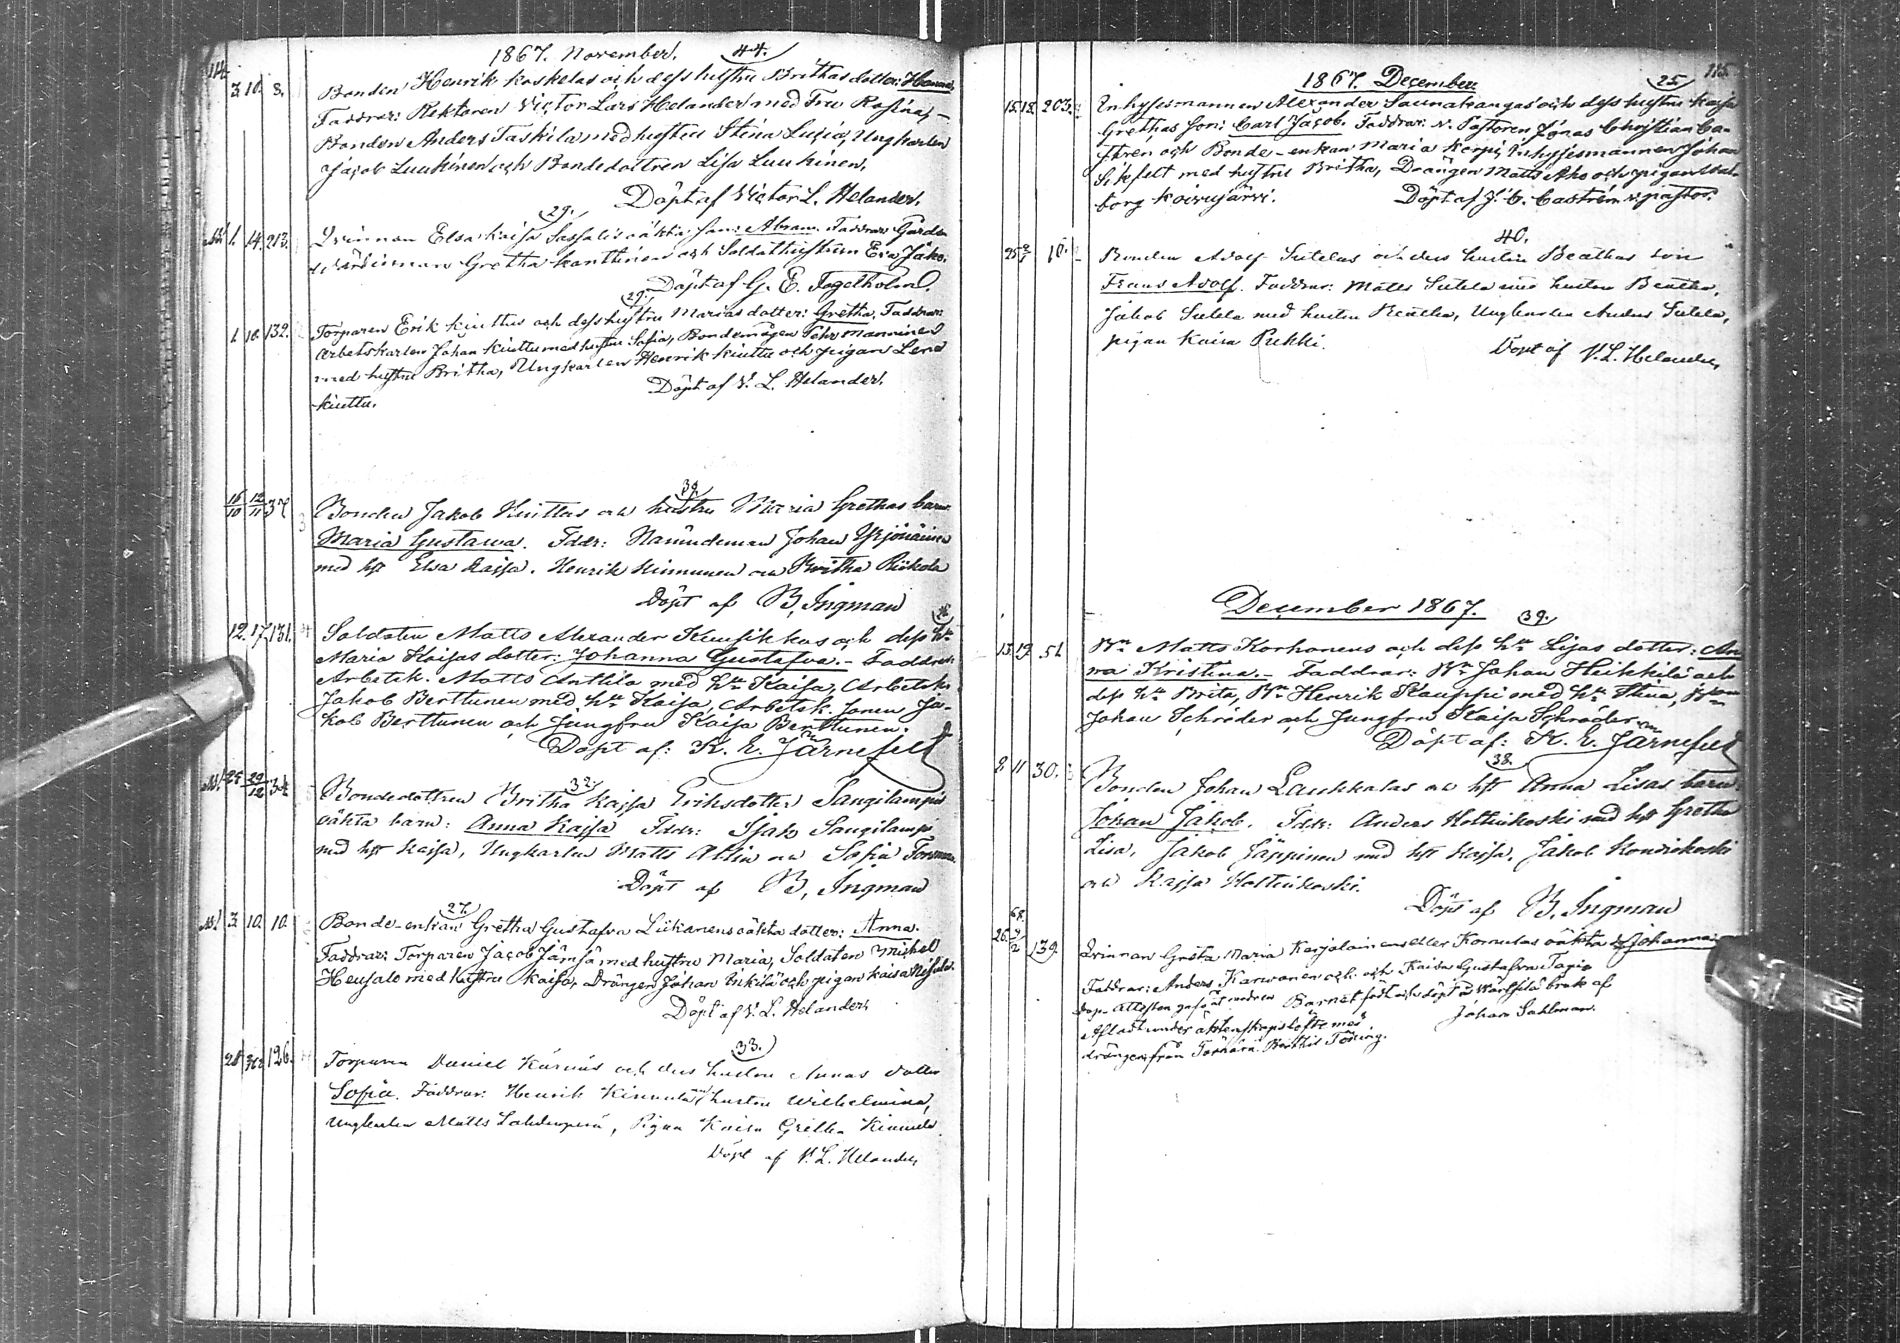 114.
1867. November. 44.
3. 10. 8. Bonden Henrik Koskelas och dess hustru Brithas dotter: Hanna,
Faddrar: Rektoren Victor Lars Helander med Fru Rosina, –
Bonden Anders Taskila med hustru Stina Lucia, Ungkarlen
Jacob Luukinen och Bondedottren Lisa Luukinen.
Döpt af Victor L. Helander.
29.
1. 14. 213. Qvinnan Elsa Kaisa oäkta son: Abram. Faddrar: Gårds-
Gretha Konttinen och Soldathustrun Eva Jako.
Döpt af G. E. Fogelholm.
29.
1. 10. 132. Torparen Erik Kiuttus och dess hustru Marias dotter: Gretha, Faddrar:
Arbetskarlen Johan Kiuttu med hustru Sofia, Bondemågen Pehr Manninen
med hustru Britha, Ungkarlen Henrik Kiuttu och pigan Lena
Kiuttu.
Döpt af V. L. Helander.
39.
16/10 12/11 37 Bonden Jakob Kiuttus och hustru Maria Grethas barn
Maria Gustava. Fddr: Nämndeman Johan Yrjönäinen
med hst Elsa Kajsa. Henrik Kinnunen och Britha Riikola
Döpt af B. Ingman
12. 17. 131. Soldaten Matts Alexander Kuusikkos och dess hu
Maria Kaisas dotter: Johanna Gustafva. – Faddrar:
Arbetsk. Matts Anttila med hu Kaisa, Arbetsk.
Jakob Berttunen med hu Kaisa, Arbetsk. sonen Ja-
kob Berttunen och Jungfru Kaisa Berttunen.
Döpt af: K. E. Järnefelt
32.
29/12 34 Bondedottren Britha Kajsa Eriksdotter Sangilampis
oäkta barn: Anna Kajsa Fddr: Isjak Sangilampi
med hst Kaisa, Ungkarlen Matts och Sofia Forsman
Döpt af B. Ingman
27.
3. 10. 10. Bonde-enkan Gretha Gustafva Liikanens oäkta dotter: Anna.
Faddrar: Torparen Jacob Jämsä med hustru Maria, Soldaten Michel
Heusalo med hustru Kaisa, Drängen Johan Inkilä och pigan Kaisa
Döpt af V. L. Helander.
33.
28 126. Torparen Daniel och dess hustru Annas dotter
Sofia. Faddrar: Henrik Kinnula hustru Wilhelmina,
Ungkarlen Matts, Pigan Kaisa Gretha Kinnula.
Döpt af V. L. Helander,
115.
1867. December. 25
15 18. 203. Inhysesmannen Alexander Saunakangas och dess hustru Kajsa
Grethas son: Carl Jacob. Faddrar: v. Pastoren Jonas Christian Ca-
strén och Bonde-enkan Maria Korpi, Inhysesmannen Johan
Sikfelt med hustru Britha, Drängen Matts Aho och pigan Wal-
borg Koivujärvi.
Döpt af J. C. Castrén v. pastor.
40.
25 10. Bonden Adolf Sutelas och dess hustru Beathas son
Frans Adolf. Faddrar: Matts Sutela med hustru Beatha,
Jakob Sutela med hustru Beatha, Ungkarlen Anders Sutela,
pigan Kaisa Pukki.
Döpt af V. L. Helander,
December 1867. 39.
13. 19. 51 Bn Matts Korhonens och dess hu Lisas dotter: An
na Kristina. – Faddrar: Bn Johan Heikkilä och
dess hu Brita, Bn Henrik Kauppi med hu Stina,
Johan Schröder och Jungfru Kaisa Schröder
Döpt af: K. E. Järnefelt
38.
8 11 30. Bonden Johan Laukkalas och hst Anna Lisas barn
Johan Jakob. Fddr: Anders Holtinkoski med hst Gretha
Lisa, Jakob Jäppinen med hst Kajsa. Jakob Kouvikoski
och Kajsa Holtinkoski.
Döpt af B. Ingman
26. 139. Qvinnan Greta Maria Karjalainens eller Kornulas oäkta d. Johanna
Faddrar: Anders Karvonen och och Kaisa Gustafva Tapio
Barnet född och döpt å Wärtsilä bruk af
Johan Sahlman.
Aflad under äktenskapslöfte med
drängen från Berthil Töring.